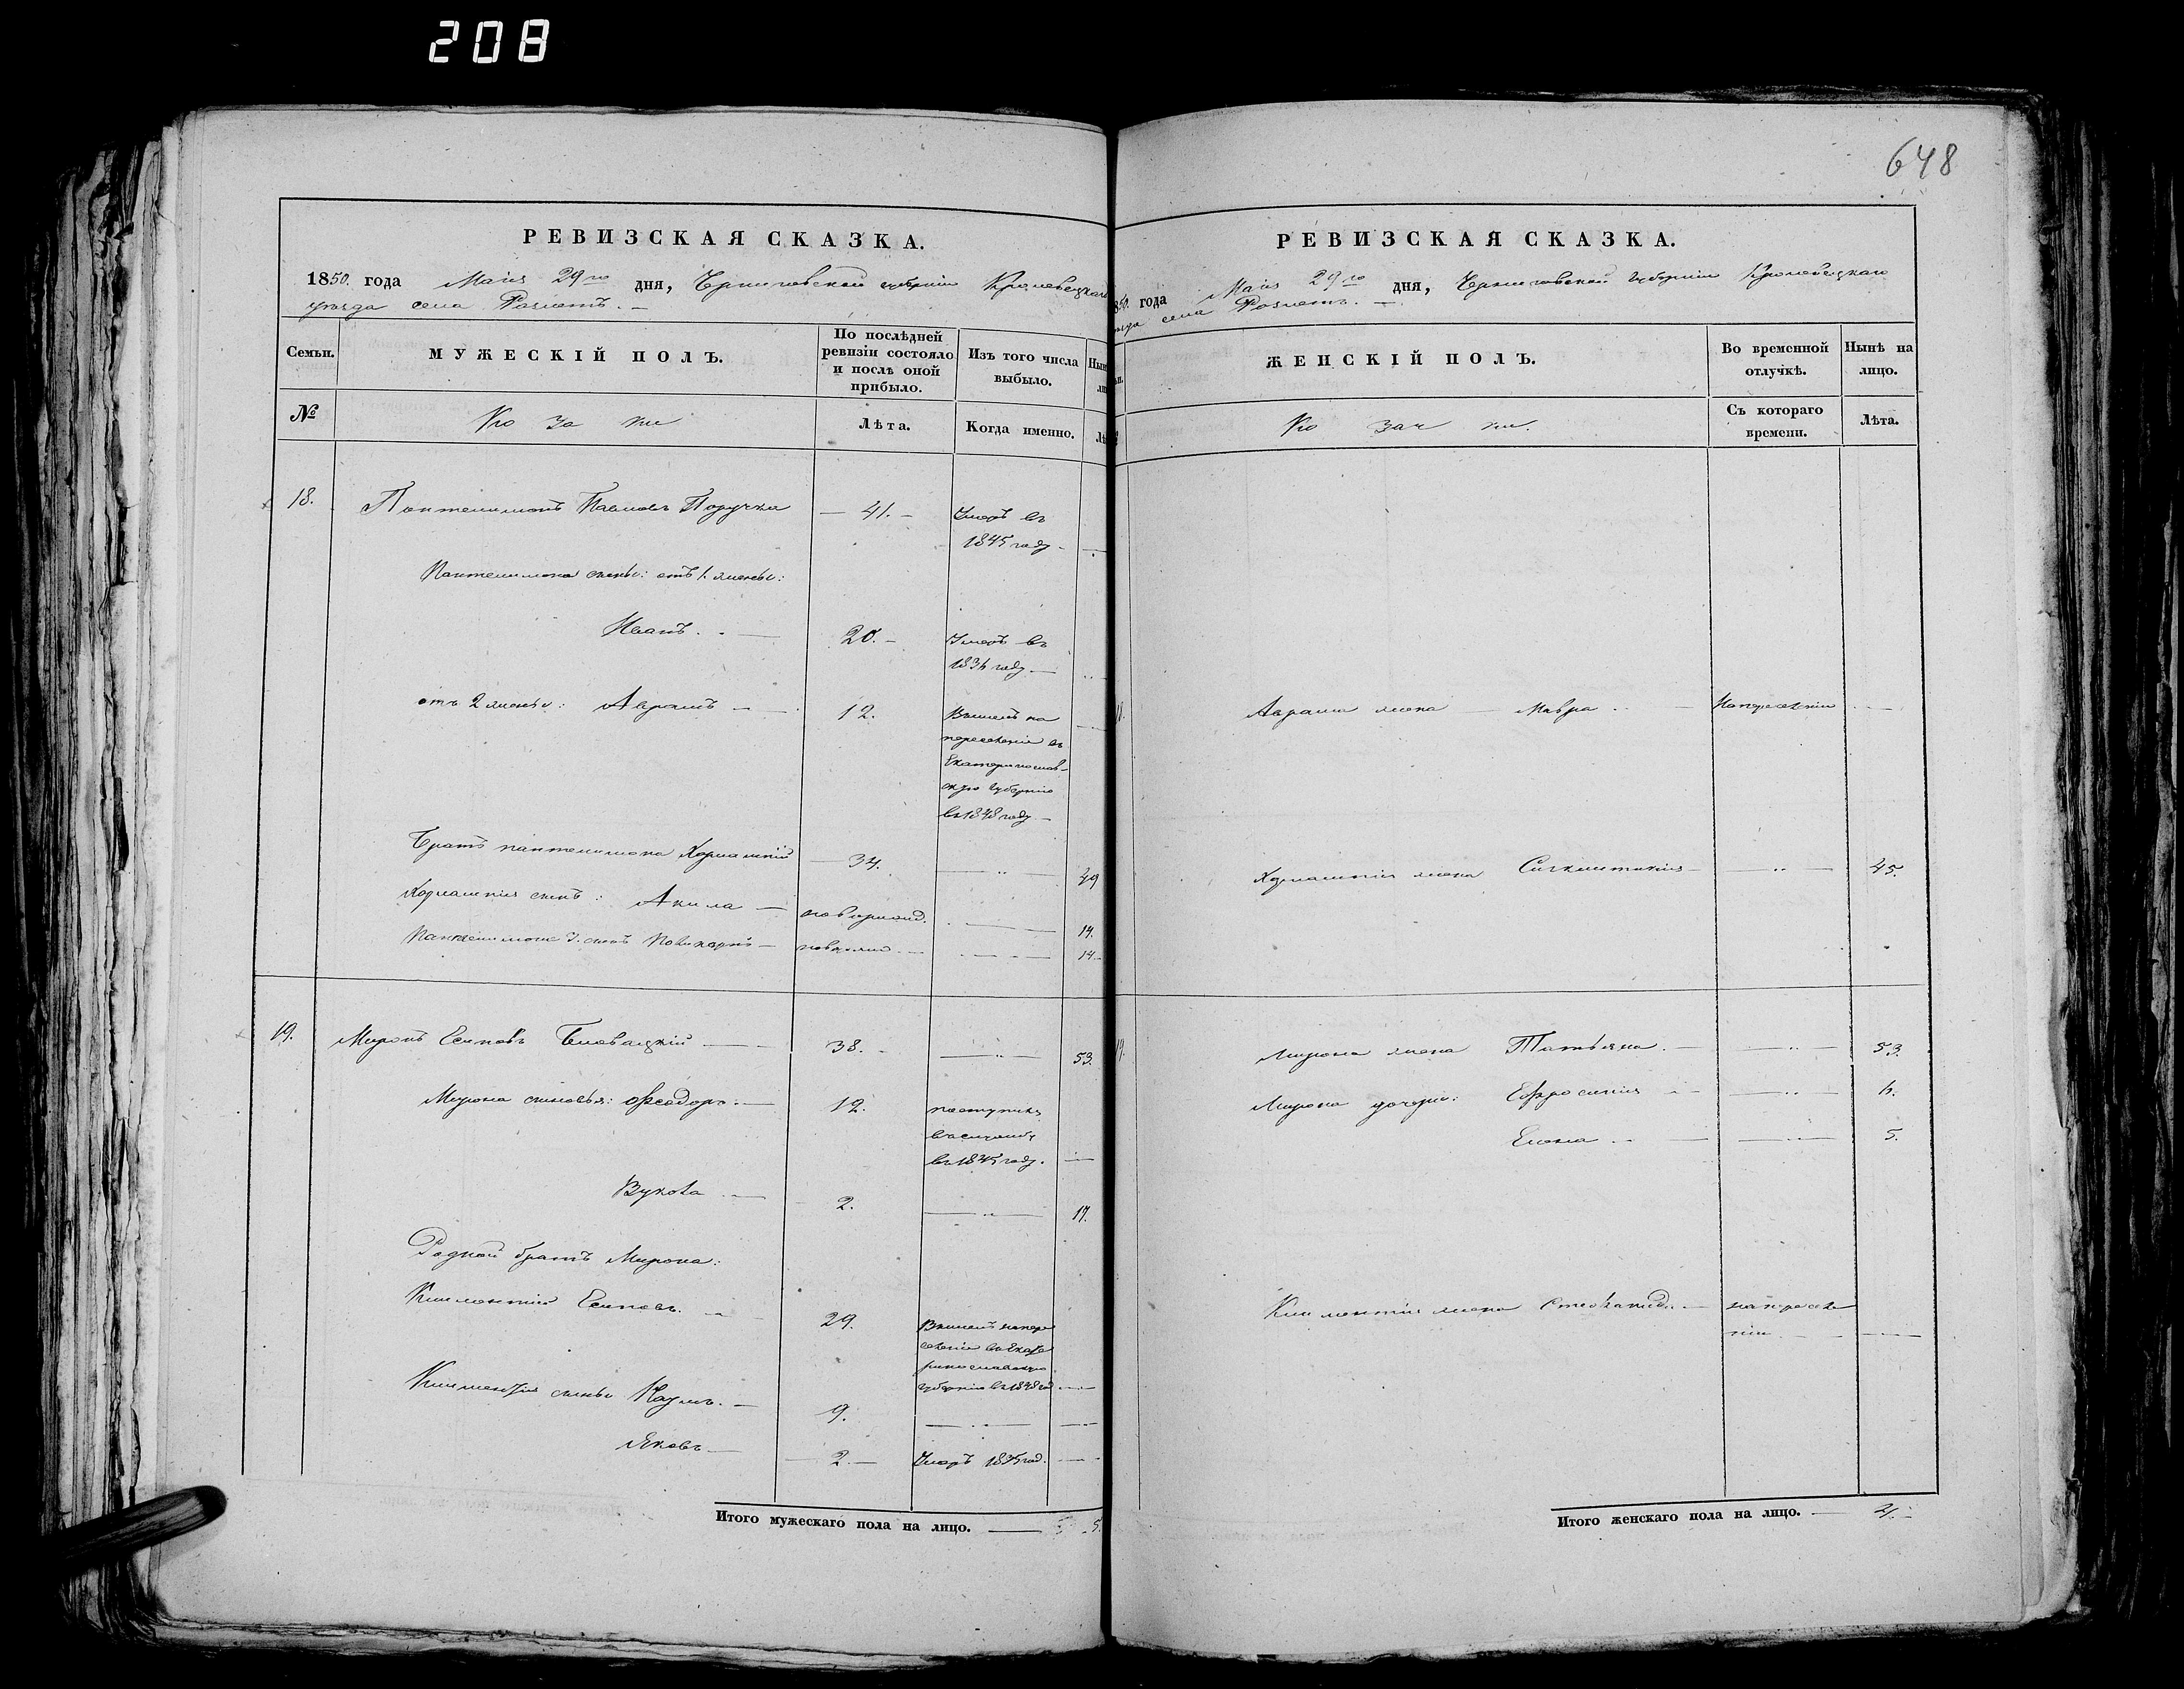 208
648
РЕВИЗСКАЯ СКАЗКА.
1850. года Маія 29го дня, Черниговской губерніи Кролевецкаго
уѣзда села Розлетъ. —
Семьи.
МУЖЕСКІЙ ПОЛЪ.
По послѣдней ревизіи состояло и послѣ оной прибыло.
Изъ того числа выбыло.
№
Козаки
Лѣта.
Когда именно.
18. Пантелимонъ Павловъ Поручка — 41. — Умеръ въ
1845 году —
Пантелимона сыны: отъ 1. жены:
Иванъ. — 20. — Умеръ въ
1836 году —
отъ 2 жены: Аврамъ — 12. Вышелъ на
переселеніе въ
Екатеринослав-
скую губернію
въ 1848 году —
Братъ Пантелимона — 34. — 49
сынъ: Акила — 14.
Пантелимона 3. сынъ Поликарпъ — 14.
19. Миронъ Есиповъ — 38. — 53.
Мирона сыновья: Феодоръ. — 12. поступилъ
въ 1845 году. —
Вукола — 2. — 17.
Родной братъ Мирона:
Климентій Есиповъ. — 29. Вышелъ на пере
селеніе въ Екате
ринославскую
губернію въ 1848 год —
Климентія сыны Наумъ. — 9. —
Яковъ — 2. — Умеръ 1835 год. —
Итого мужескаго пола на лицо. — 5.
РЕВИЗСКАЯ СКАЗКА.
1850. года Маія 29го дня, Черниговской губерніи Кролевецкаго
уѣзда села Розлетъ. —
ЖЕНСКІЙ ПОЛЪ.
Во временной отлучкѣ.
Нынѣ на лицо.
Козачки.
Съ котораго времени.
Лѣта.
18. Аврама жена — Мавра — На переселеніи —
жена — 45.
19. Мирона жена Татьяна. — 53.
Мирона дочери: Ефросинія — 6.
Елена — 5.
Климентія жена Степанида — на переселе
ніи —
Итого женскаго пола на лицо. — 4. —